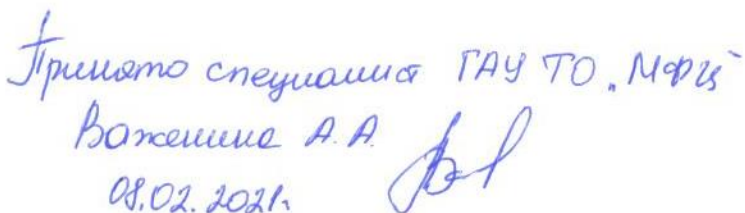 Принято специалист ГАУ ТО "МФЦ"
Важенина А.А.
08.02.2021г.